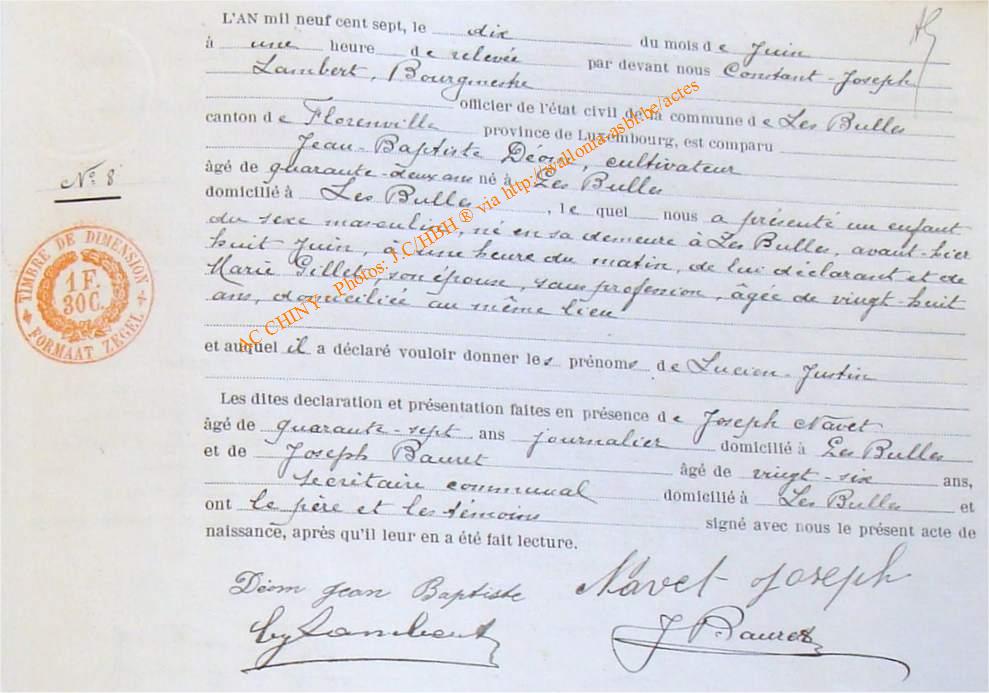 L'AN mil neuf cent sept, le dix du mois de Juin
à une heure de relevée par devant nous Constant-Joseph
Lambert, Bourgmestre
officier de l'état civil de la commune de Les Bulles
canton de Florenville province de Luxembourg, est comparu
Jean-Baptiste Déom, cultivateur
âgé de quarante-deux ans né à Les Bulles
domicilié à Les Bulles, lequel nous a présenté un enfant
du sexe masculin, né en sa demeure à Les Bulles, avant-hier
huit Juin, à une heure du matin, de lui déclarant et de
Marie Gillet, son épouse, sans profession, âgée de vingt-huit
ans, domiciliée au même lieu
et auquel il a déclaré vouloir donner les prénoms de Lucien-Justin
Les dites declaration et présentation faites en présence de Joseph Navet
âgé de quarante-sept ans journalier domicilié à Les Bulles
et de Joseph Bauret âgé de vingt-six ans,
secrétaire communal domicilié à Les Bulles et
ont le père et les témoins signé avec nous le présent acte de
naissance, après qu'il leur en a été fait lecture.
Déom Jean Baptiste Navet Joseph
Lambert J Bauret
N° 8
TIMBRE DE DIMENSION
1 F.
30 C.
FORMAAT ZEGEL
AC CHINY - Photos: J.C/HBH ® via http://wallonia-asbl.be/actes